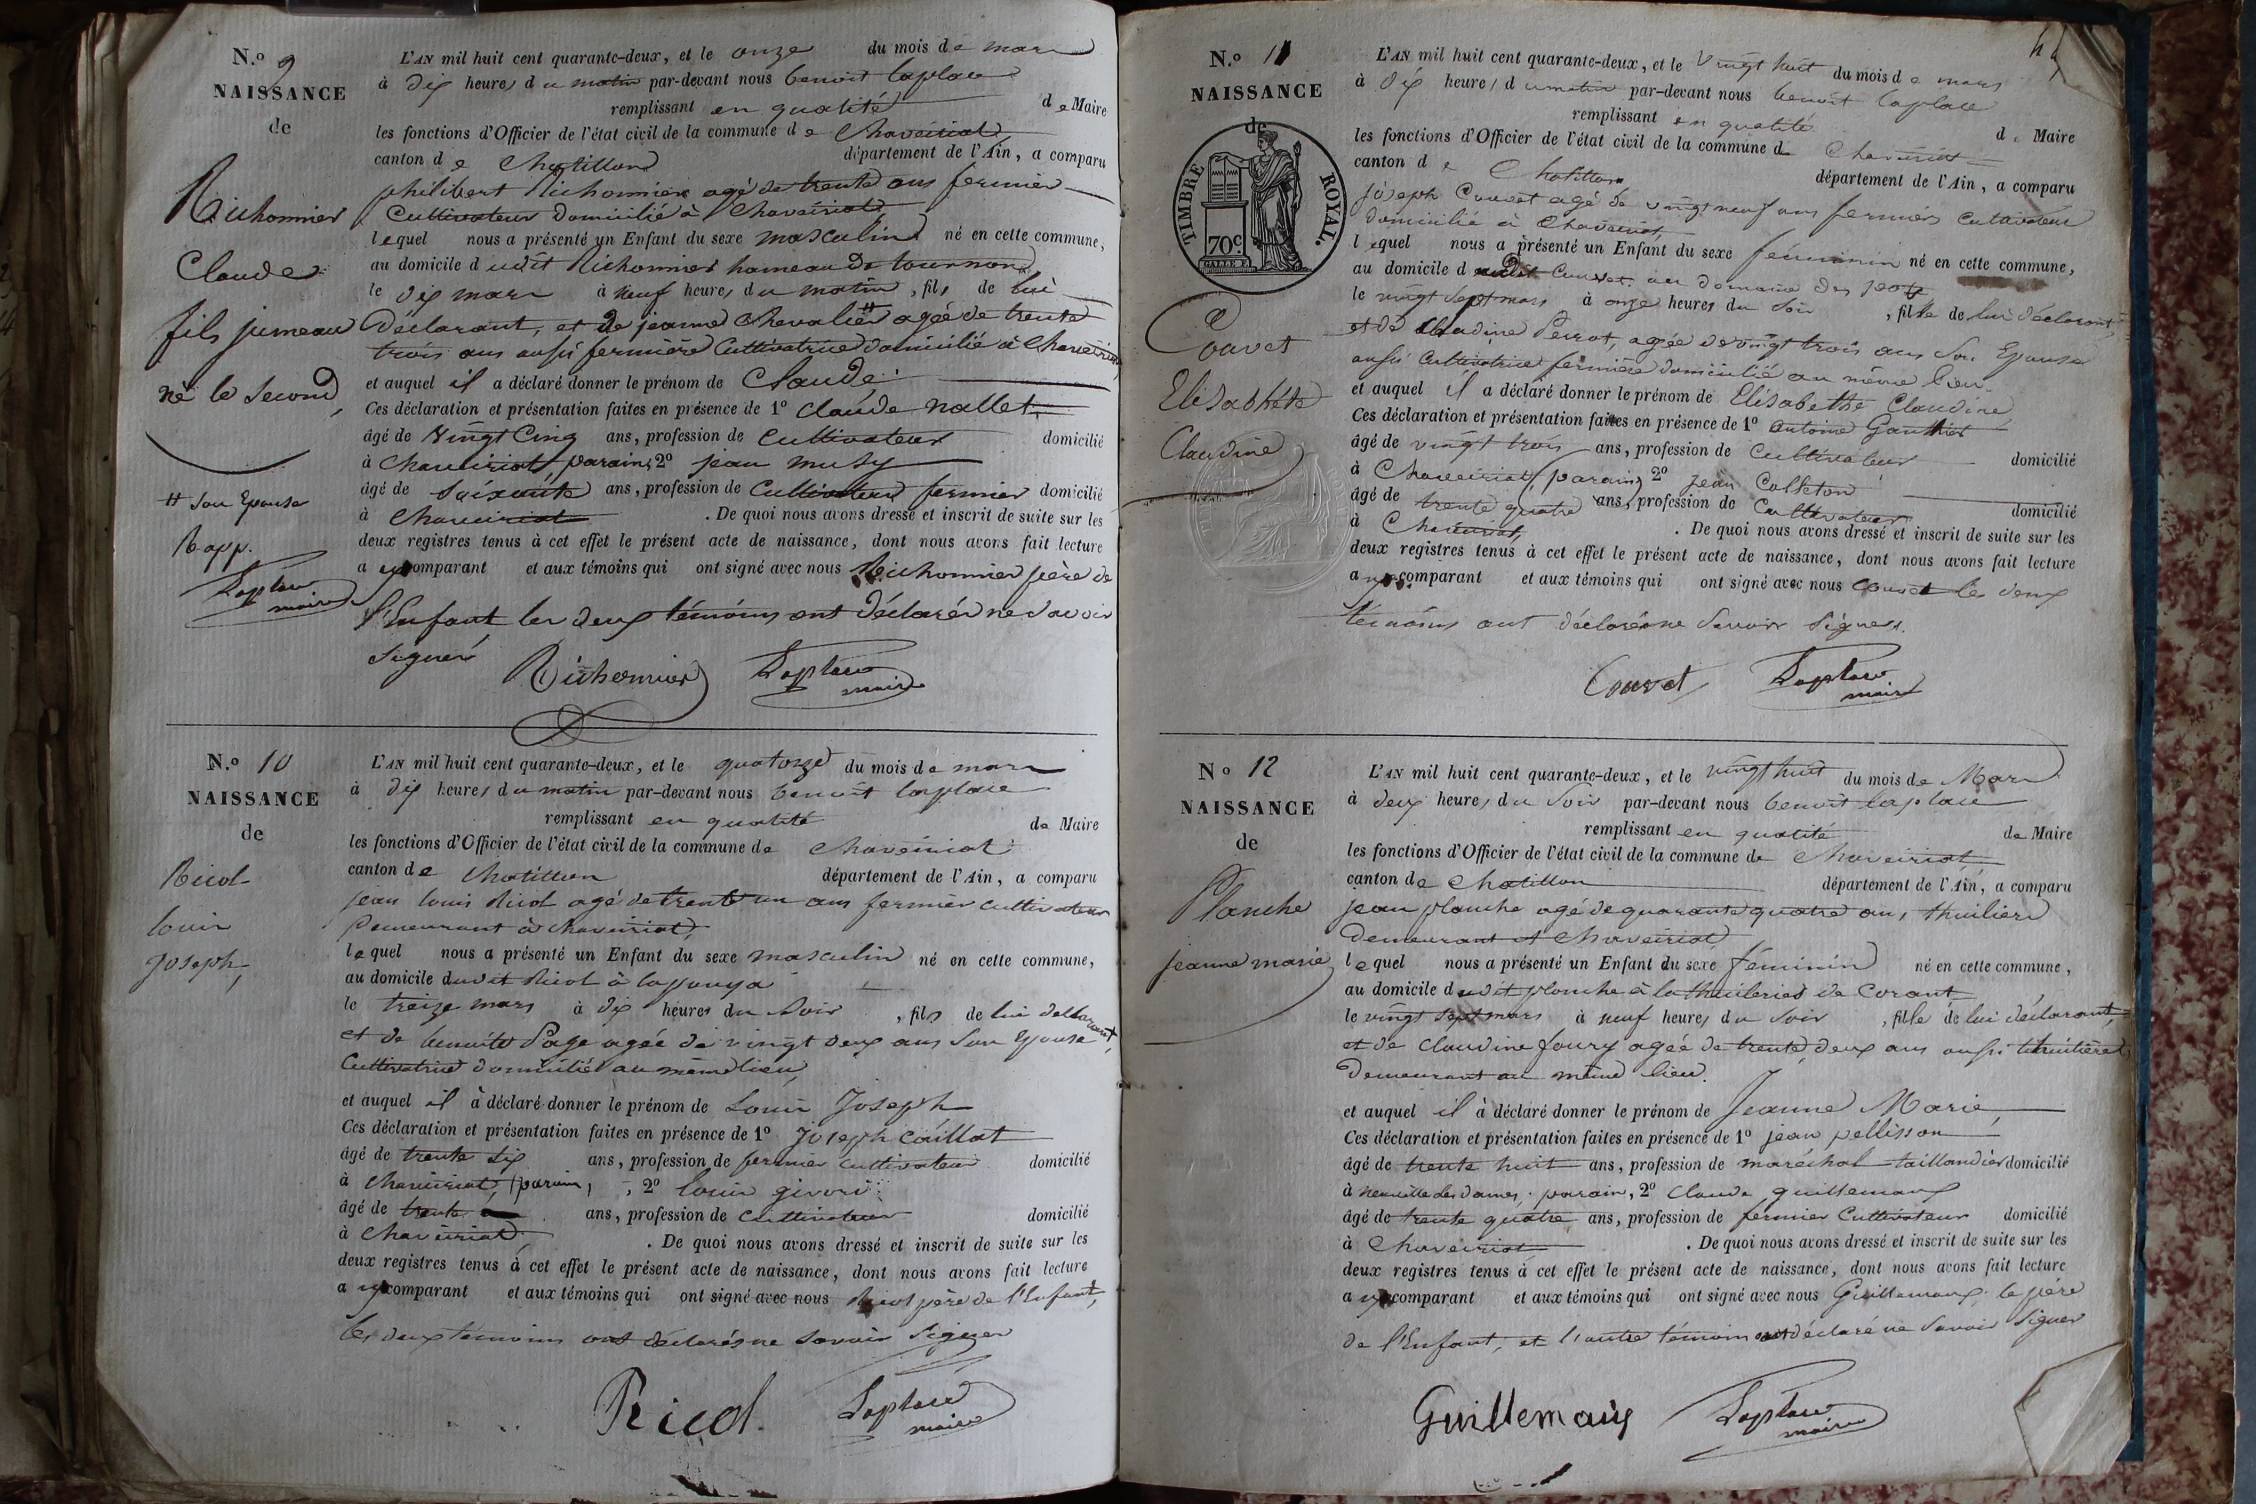 N.º 9
NAISSANCE
de
Richonnier
Claude
fils jumeau
né le second,
# son Epouse
Rapp.
Laplace
maire
L'AN mil huit cent quarante-deux, et le onze du mois de mars
à dix heures du matin par-devant nous benoit laplace
remplissant en qualité de Maire
les fonctions d'Officier de l'état civil de la commune de Chaveiriat
canton de Chatillon département de l'Ain, a comparu
philibert Richonnier agé de trente ans fermier
Cultivateur domicilié à Chaveiriat
lequel nous a présenté un Enfant du sexe masculin né en cette commune,
au domicile dudit Richonnier hameau de tournon
le dix mars à neuf heures du matin, fils de lui
déclarant, et de jeanne Chevalier # agée de trente
trois ans aussi fermière Cultivatrice domicilié à Chaveiriat
et auquel il a déclaré donner le prénom de Claude
Ces déclaration et présentation faites en présence de 1º claude nallet,
âgé de vingt Cinq ans, profession de cultivateur domicilié
à Chaveiriat, parain, 2º jean musy
âgé de soixante ans, profession de Cultivateur fermier domicilié
à Chaveiriat . De quoi nous avons dressé et inscrit de suite sur les
deux registres tenus à cet effet le présent acte de naissance, dont nous avons fait lecture
au comparant et aux témoins qui ont signé avec nous Richonnier père de
l'Enfant les deux témoins ont déclarés ne savoir
signer
Richonnier Laplace
maire
N.º 10
NAISSANCE
de
Ricol
louis
Joseph,
L'AN mil huit cent quarante-deux, et le quatorze du mois de mars
à dix heures du matin par-devant nous benoit laplace
remplissant en qualité de Maire
les fonctions d'Officier de l'état civil de la commune de Chaveiriat
canton de Chatillon département de l'Ain, a comparu
jean louis Ricol agé de trente un ans fermier cultivateur
Demeurant à Chaveiriat,
lequel nous a présenté un Enfant du sexe masculin né en cette commune,
au domicile dudit Ricol à
le treize mars à dix heures du soir, fils de lui déclarant,
et de benoite Page agée de vingt deux ans son Epouse
Cultivatrice domicilié au même lieu,
et auquel il a déclaré donner le prénom de Louis Joseph
Ces déclaration et présentation faites en présence de 1º Joseph caillat
âgé de trente six ans, profession de fermier cultivateur domicilié
à Chaveiriat, (parain, , 2º louis
âgé de trente ans, profession de Cultivateur domicilié
à Chaveiriat . De quoi nous avons dressé et inscrit de suite sur les
deux registres tenus à cet effet le présent acte de naissance, dont nous avons fait lecture
au comparant et aux témoins qui ont signé avec nous Ricol père de l'Enfant,
les deux témoins ont déclarés ne savoir signer
Ricol. Laplace
maire
N.º 11
NAISSANCE
de
TIMBRE ROYAL.
70c.
Couvet
Elisabhète
Claudine
L'AN mil huit cent quarante-deux, et le vingt huit du mois de mars
à dix heures du matin par-devant nous benoit laplace
remplissant en qualité de Maire
les fonctions d'Officier de l'état civil de la commune de Chaveiriat
canton de Chatillon département de l'Ain, a comparu
joseph Couvet agé de vingt neuf ans fermier cultivateur
domicilié à Chaveiriat,
lequel nous a présenté un Enfant du sexe féminin né en cette commune,
au domicile dudit Couvet au domaine des
le vingt sept mars à onze heures du soir, fille de lui déclarant,
et de Claudine Perrot, agée de vingt trois ans son Epouse
aussi Cultivatrice fermière domicilié au même lieu.
et auquel il a déclaré donner le prénom de Elisabethe Claudine
Ces déclaration et présentation faites en présence de 1º antoine Gauthier
âgé de vingt trois ans, profession de Cultivateur domicilié
à Chaveiriat, (parain, 2º jean Calleton
âgé de trente quatre ans, profession de Cultivateur domicilié
à Chaveiriat, . De quoi nous avons dressé et inscrit de suite sur les
deux registres tenus à cet effet le présent acte de naissance, dont nous avons fait lecture
au comparant et aux témoins qui ont signé avec nous Couvet les deux
témoins ont déclarés ne savoir signer.
Couvet Laplace
maire
Nº 12
NAISSANCE
de
Planche
jeanne marie
L'AN mil huit cent quarante-deux, et le vingt huit du mois de Mars
à deux heures du soir par-devant nous benoit laplace
remplissant en qualité de Maire
les fonctions d'Officier de l'état civil de la commune de Chaveiriat
canton de Chatillon département de l'Ain, a comparu
jean planche agé de quarante quatre ans, thuilier
demeurant à Chaveiriat
lequel nous a présenté un Enfant du sexe féminin né en cette commune,
au domicile dudit planche à la thuileries de Corant
le vingt sept mars à neuf heures du soir, fille de lui déclarant,
et de Claudine foury agée de trente deux ans aussi thuilière
Demeurant au même lieu.
et auquel il a déclaré donner le prénom de Jeanne Marie,
Ces déclaration et présentation faites en présence de 1º jean pellisson
âgé de trente huit ans, profession de maréchal taillandier domicilié
à neuville les dames, parain, 2º Claude guillemaux
âgé de trente quatre ans, profession de fermier Cultivateur domicilié
à Chaveiriat . De quoi nous avons dressé et inscrit de suite sur les
deux registres tenus à cet effet le présent acte de naissance, dont nous avons fait lecture
au comparant et aux témoins qui ont signé avec nous Guillemaux le père
de l'Enfant, et l'autre témoin ont déclaré ne savoir signer
Guillemaux Laplace
maire